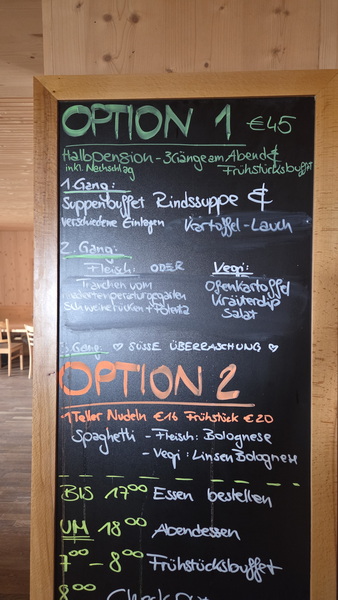 OPTION 1 €45
Halbpension - 3 Gänge am Abend &
inkl. Nachschlag Frühstücksbuffet
1. Gang:
Suppenbuffet Rindssuppe &
verschiedene Einlagen Kartoffel-Lauch
2. Gang:
Fleisch: ODER Vegi:
Tranchen vom Ofenkartoffel
niedertemperaturgegarten Kräuterdip
Schweinerücken + Polenta Salat
3. Gang: ♡ SÜSSE ÜBERRASCHUNG ♡
OPTION 2
1 Teller Nudeln €16 Frühstück €20
Spaghetti - Fleisch: Bolognese
- Vegi: Linsen Bolognese
BIS 17⁰⁰ Essen bestellen
UM 18⁰⁰ Abendessen
7⁰⁰ - 8⁰⁰ Frühstücksbuffet
8⁰⁰ Check Out